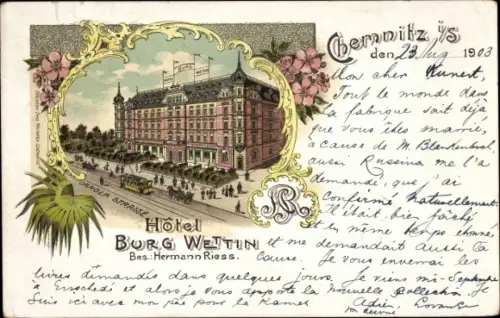 Chemnitz i/S
den 23 Aug 1903
Mon cher Kunert,
Tout le monde dans
la fabrique sait déjà
que vous êtes marrié,
à cause de M. Blankenbush,
aussi Russina me l'a
demandé, que j'ai
confirmé naturellement.
Il était bien faché
et en même temps étonné,
et me demandait aussi la
cause. Je vous enverrai les
livres demandés dans quelques jours. Je viens mi-Septembre
à Enschedé et alors je vous apporte la nouvelle collection. Je
suis ici avec mon pour la
Adieu,
CAROLA STRASSE
Hôtel
BURG WETTIN
Bes.: Hermann Riess.